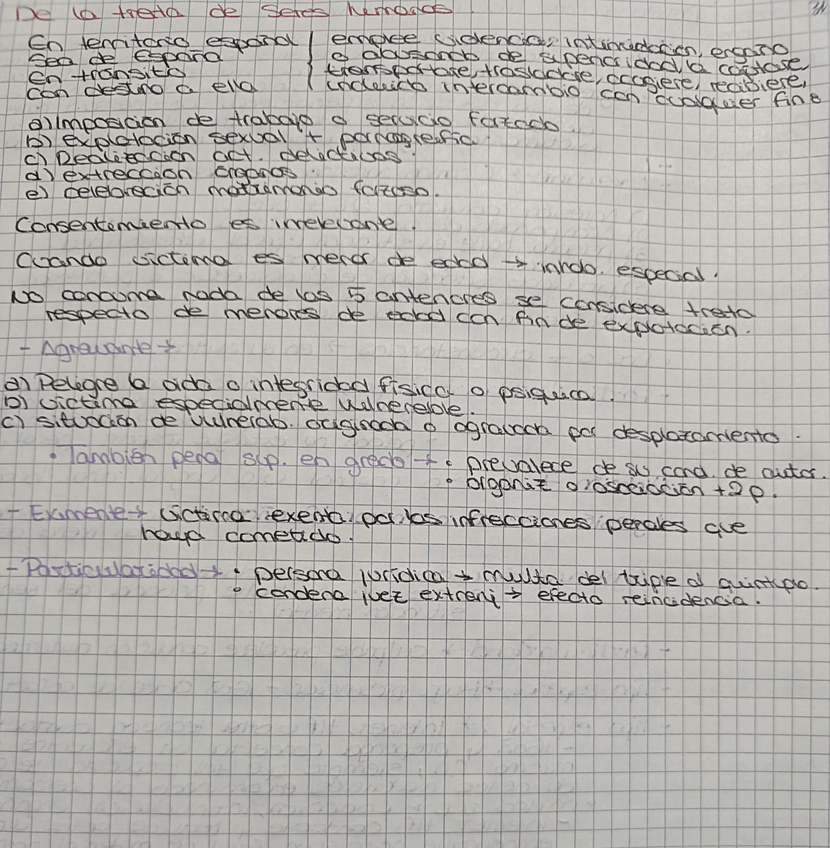 De la trata de Seres humanos
En territorio español
Sea de España
en tránsito
con destino a ella
emplee violencia, intimidación, engaño
o abusando de superioridad la captase
transportare, trasladare, acogiere, recibiere,
incluido intercambio con cualquier fine
a) Imposición de trabajo o servicio forzado.
b) explotación sexual + pornografía
c) Realización act. delictivas.
d) extracción órganos.
e) celebración matrimonio forzoso.
Consentimiento es irrelevante.
Cuando víctima es menor de edad → especial.
No concurra nada de los 5 anteriores se considera trata
respecto de menores de edad con fin de explotación.
- Agravante →
a) Peligre la vida o integridad física o psíquica.
b) víctima especialmente vulnerable.
c) situación de vulnerab. originada o agravada por desplazamiento.
• También pena sup. en grado → • prevalece de su cond. de autor.
• organiz o asociación +2p.
- Eximente → víctima exenta por las infracciones penales que
haya cometido.
- Particularidad → • persona jurídica → multa del triple al quíntuplo.
• condena juez extranj → efecto reincidencia.